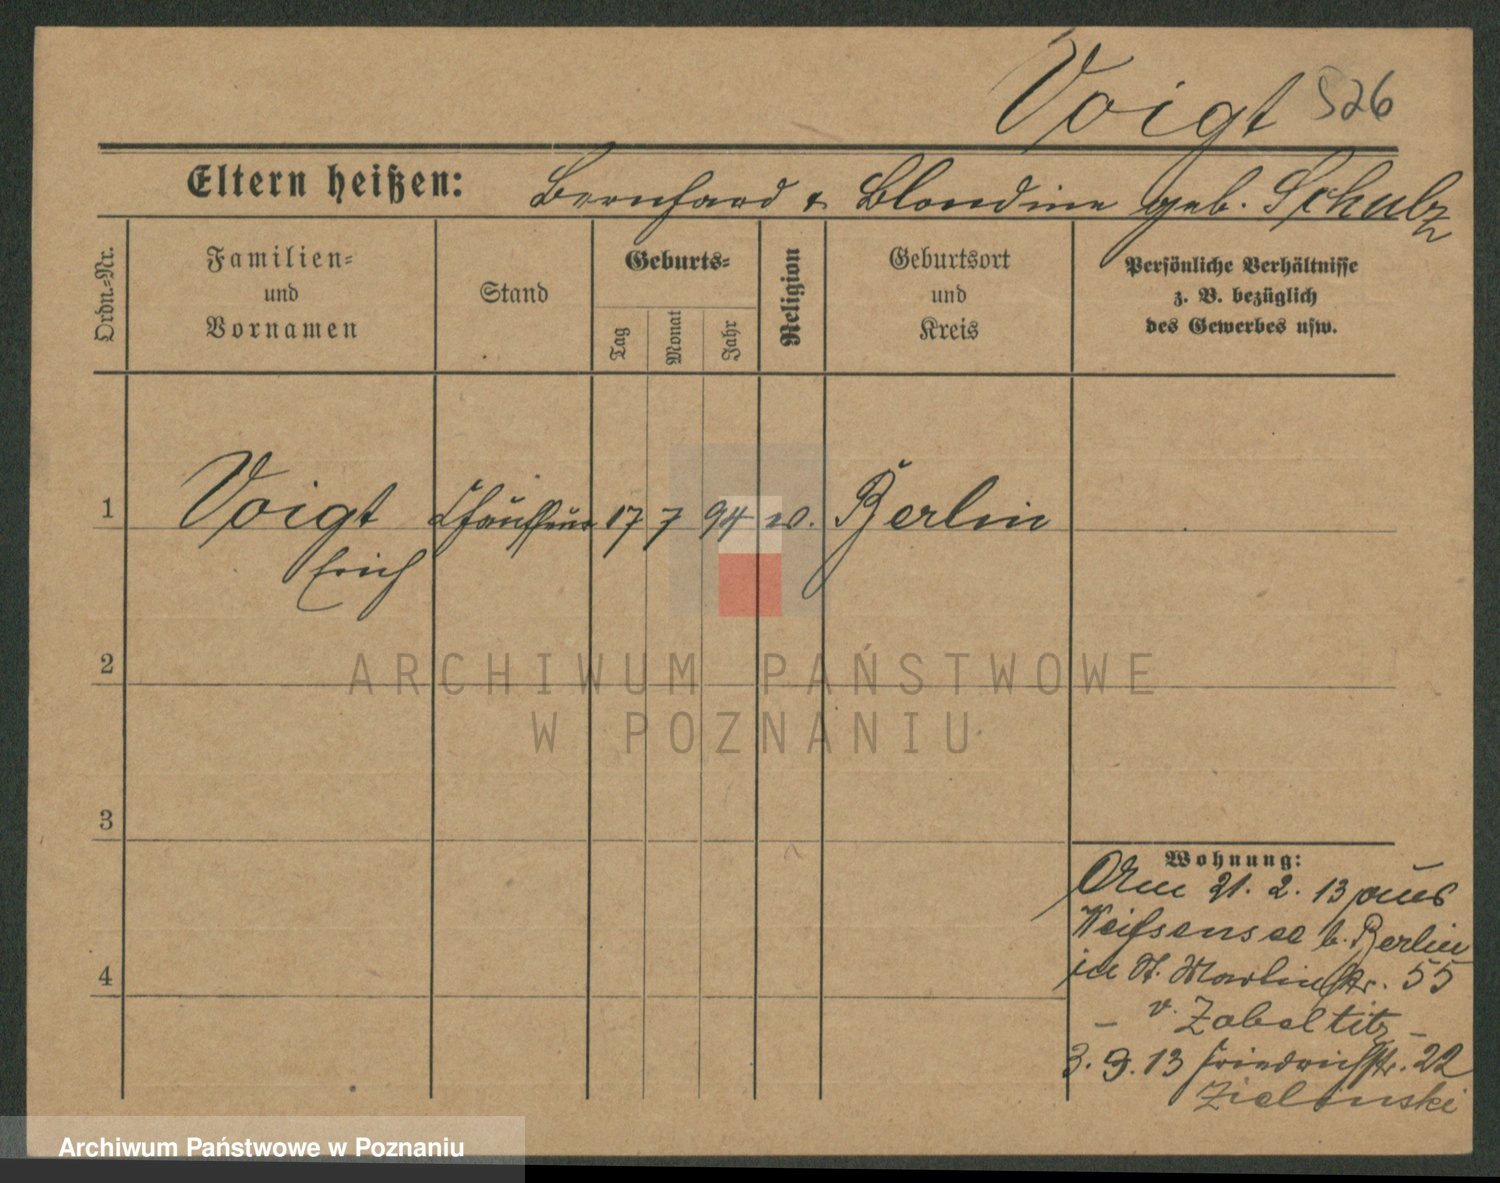 Voigt 526
Eltern heißen: Bernhard & Blondine geb. Schulz
Ordn.-Nr.
Familien-
und
Vornamen
Stand
Geburts-
Tag
Monat
Jahr
Religion
Geburtsort
und
Kreis
Persönliche Verhältnisse
z. B. bezüglich
des Gewerbes usw.
1 Voigt Chauffeur 17 7 94 ev. Berlin
Erich
2
3
4
Wohnung:
Am 21. 2. 13 aus
Weißensee b. Berlin
in St. Martinstr. 55
– v. Zabeltitz –
3. 9. 13 Friedrichstr. 22
Zielinski
ARCHIWUM PAŃSTWOWE
W POZNANIU
Archiwum Państwowe w Poznaniu